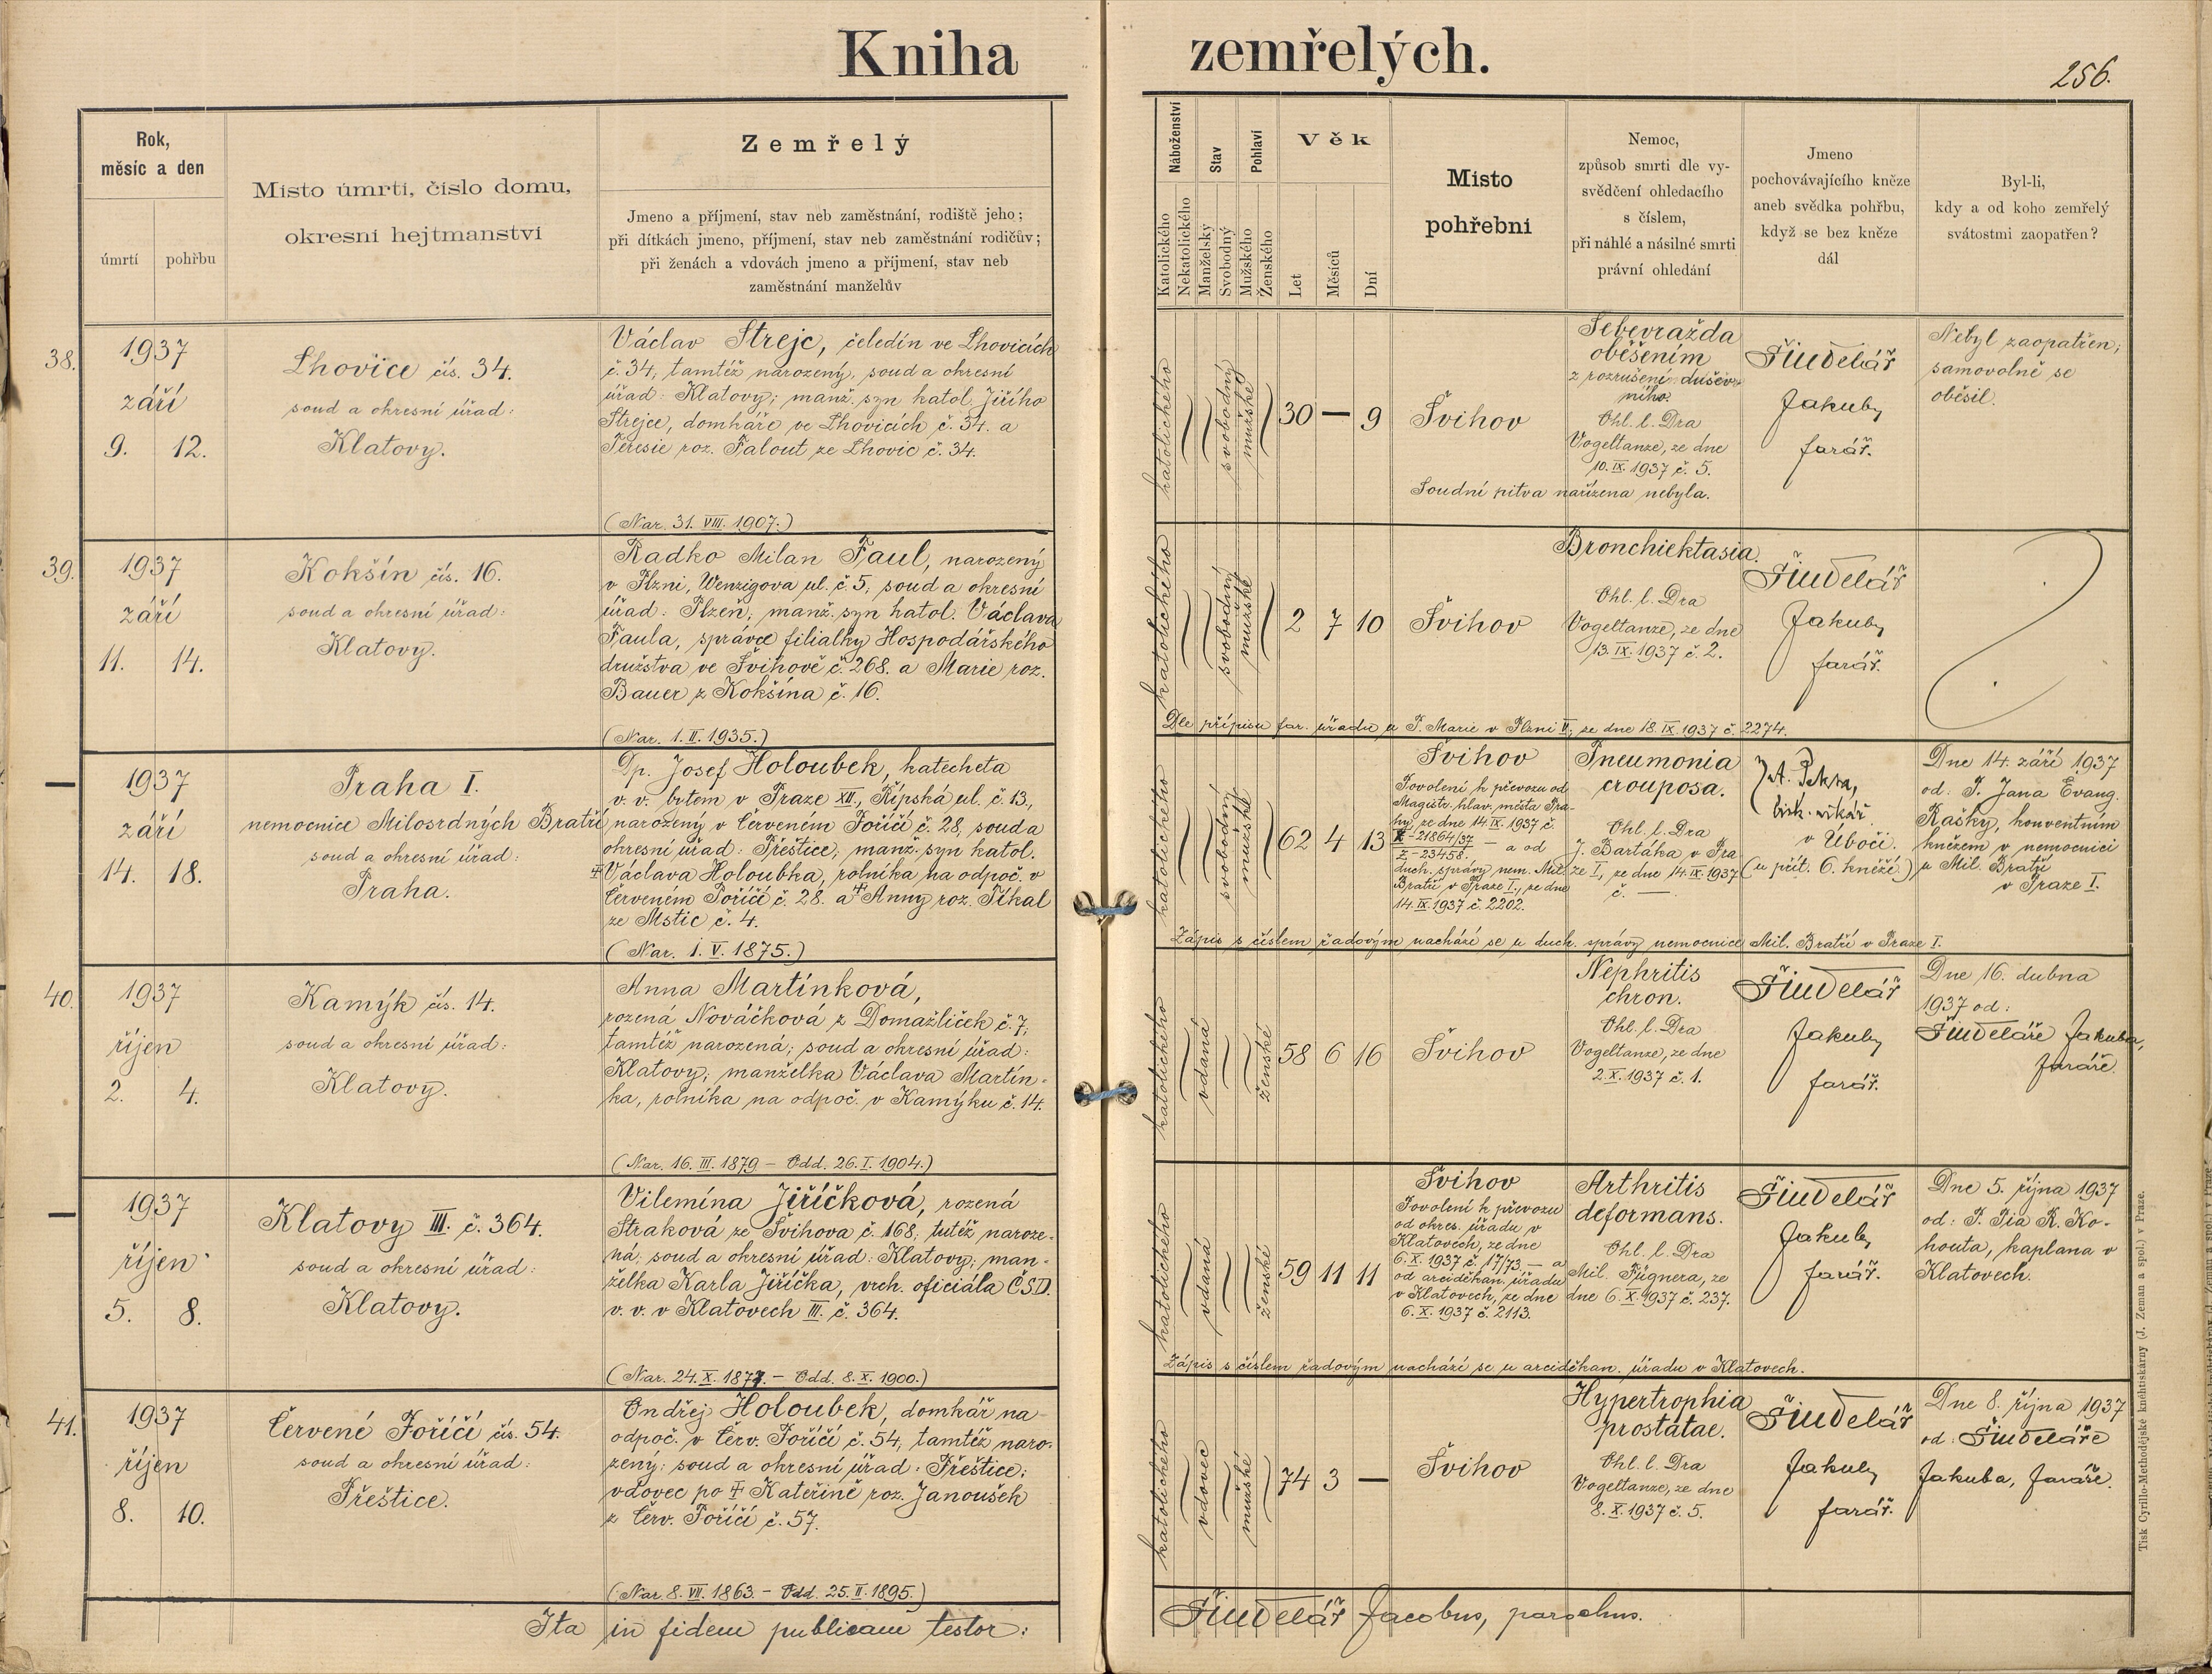 Kniha zemřelých.
256.
Rok,
měsíc a den
úmrtí
pohřbu
Místo úmrtí, číslo domu,
okresní hejtmanství
Zemřelý
Jmeno a příjmení, stav neb zaměstnání, rodiště jeho;
při dítkách jmeno, příjmení, stav neb zaměstnání rodičův;
při ženách a vdovách jmeno a příjmení, stav neb
zaměstnání manželův
Náboženství
Katolického
Nekatolického
Stav
Manželský
Svobodný
Pohlaví
Mužského
Ženského
Věk
Let
Měsíců
Dní
Místo
pohřební
Nemoc,
způsob smrti dle vy-
svědčení ohledacího
s číslem,
při náhlé a násilné smrti
právní ohledání
Jmeno
pochovávajícího kněze
aneb svědka pohřbu,
když se bez kněze
dál
Byl-li,
kdy a od koho zemřelý
svátostmi zaopatřen?
38.
1937
září
9. 12.
Lhovice čís. 34.
soud a okresní úřad:
Klatovy.
Václav Strejc, čeledín ve Lhovicích
č. 34, tamtéž narozený, soud a okresní
úřad: Klatovy; manž. syn katol. Jiřího
Strejce, domkáře ve Lhovicích č. 34. a
Teresie roz. Falout ze Lhovic č. 34.
(Nar. 31. VIII. 1907.)
katolického
svobodný
mužské
30 — 9
Švihov
Sebevražda
oběšením
z rozrušení dušev-
ního.
Ohl. l. Dra
Vogeltanze, ze dne
10. IX. 1937 č. 5.
Soudní pitva nařízena nebyla.
Šindelář
Jakub,
farář.
Nebyl zaopatřen;
samovolně se
oběsil.
39.
1937
září
11. 14.
Kokšín čís. 16.
soud a okresní úřad:
Klatovy.
Radko Milan Faul, narozený
v Plzni, Wenzigova ul. č. 5, soud a okresní
úřad: Plzeň; manž. syn katol. Václava
Faula, správce filialky Hospodářského
družstva ve Švihově č. 268. a Marie roz.
Bauer z Kokšína č. 16.
(Nar. 1. II. 1935.)
katolického
svobodný
mužské
2 7 10
Švihov
Bronchiektasia.
Ohl. l. Dra
Vogeltanze, ze dne
13. IX. 1937 č. 2.
Šindelář
Jakub,
farář.
Dle přípisu far. úřadu u P. Marie v Plzni II, ze dne 18. IX. 1937 č. 2274.
—
1937
září
14. 18.
Praha I.
nemocnice Milosrdných Bratří
soud a okresní úřad:
Praha.
Dp. Josef Holoubek, katecheta
v. v. bytem v Praze XII., Řípská ul. č. 13.,
narozený v Červeném Poříčí č. 28, soud a
okresní úřad: Přeštice; manž. syn katol.
† Václava Holoubka, rolníka na odpoč. v
Červeném Poříčí č. 28. a † Anny roz. Říkal
ze Mstic č. 4.
(Nar. 1. V. 1875.)
katolického
svobodný
mužské
62 4 13
Švihov
Povolení k převozu od
Magistr. hlav. města Pra-
hy, ze dne 14. IX. 1937 č.
X-21864/37
Z-23458. — a od
duch. správy nem. Mil.
Bratří v Praze I., ze dne
14. IX. 1937 č. 2202.
Pneumonia
crouposa.
Ohl. l. Dra
J. Bartáka v Pra
ze I., ze dne 14. IX. 1937
č. —
bisk. vikář
v Úboči.
(u přít. 6. kněží.)
Dne 14. září 1937
od: P. Jana Evang.
Rašky, konventním
knězem v nemocnici
u Mil. Bratří
v Praze I.
Zápis s číslem řadovým nachází se u duch. správy nemocnice Mil. Bratří v Praze I.
40.
1937
říjen
2. 4.
Kamýk čís. 14.
soud a okresní úřad:
Klatovy.
Anna Martínková,
rozená Nováčková z Domažliček č. 7,
tamtéž narozená; soud a okresní úřad:
Klatovy; manželka Václava Martín-
ka, rolníka na odpoč. v Kamýku č. 14.
(Nar. 16. III. 1879 – Odd. 26. I. 1904.)
katolického
vdaná
ženské
58 6 16
Švihov
Nephritis
chron.
Ohl. l. Dra
Vogeltanze, ze dne
2. X. 1937 č. 1.
Šindelář
Jakub,
farář.
Dne 16. dubna
1937 od:
Šindeláře Jakuba,
faráře.
—
1937
říjen
5. 8.
Klatovy III. č. 364.
soud a okresní úřad:
Klatovy.
Vilemína Jiříčková, rozená
Straková ze Švihova č. 168, tutéž naroze-
ná; soud a okresní úřad: Klatovy; man-
želka Karla Jiříčka, vrch. oficiála ČSD.
v. v. v Klatovech III. č. 364.
(Nar. 24. X. 1877. – Odd. 8. X. 1900.)
katolického
vdaná
ženské
59 11 11
Švihov
Povolení k převozu
od okres. úřadu v
Klatovech, ze dne
6. X. 1937 č. 17/73. — a
od arciděkan. úřadu
v Klatovech, ze dne
6. X. 1937 č. 2113.
Arthritis
deformans.
Ohl. l. Dra
Mil. Fügnera, ze
dne 6. X. 1937 č. 237.
Šindelář
Jakub,
farář.
Dne 5. října 1937
od: P. Pia R. Ko-
houta, kaplana v
Klatovech.
Zápis s číslem řadovým nachází se u arciděkan. úřadu v Klatovech.
41.
1937
říjen
8. 10.
Červené Poříčí čís. 54.
soud a okresní úřad:
Přeštice.
Ondřej Holoubek, domkář na
odpoč. v Červ. Poříčí č. 54, tamtéž naro-
zený; soud a okresní úřad: Přeštice;
vdovec po † Kateřině roz. Janoušek
z Červ. Poříčí č. 57.
(Nar. 8. VII. 1863. – Odd. 25. II. 1895.)
katolického
vdovec
mužské
74 3 —
Švihov
Hypertrophia
prostatae.
Ohl. l. Dra
Vogeltanze, ze dne
8. X. 1937 č. 5.
Šindelář
Jakub,
farář.
Dne 8. října 1937
od: Šindeláře
Jakuba, faráře.
Ita in fidem publicam testor:
Šindelář Jacobus, parochus.
Tisk Cyrillo-Methodějské knihtiskárny (J. Zeman a spol.) v Praze.